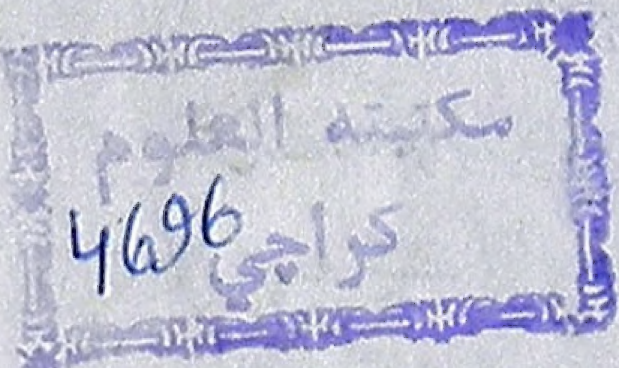 مكتبته العلوم
4696
كراچي